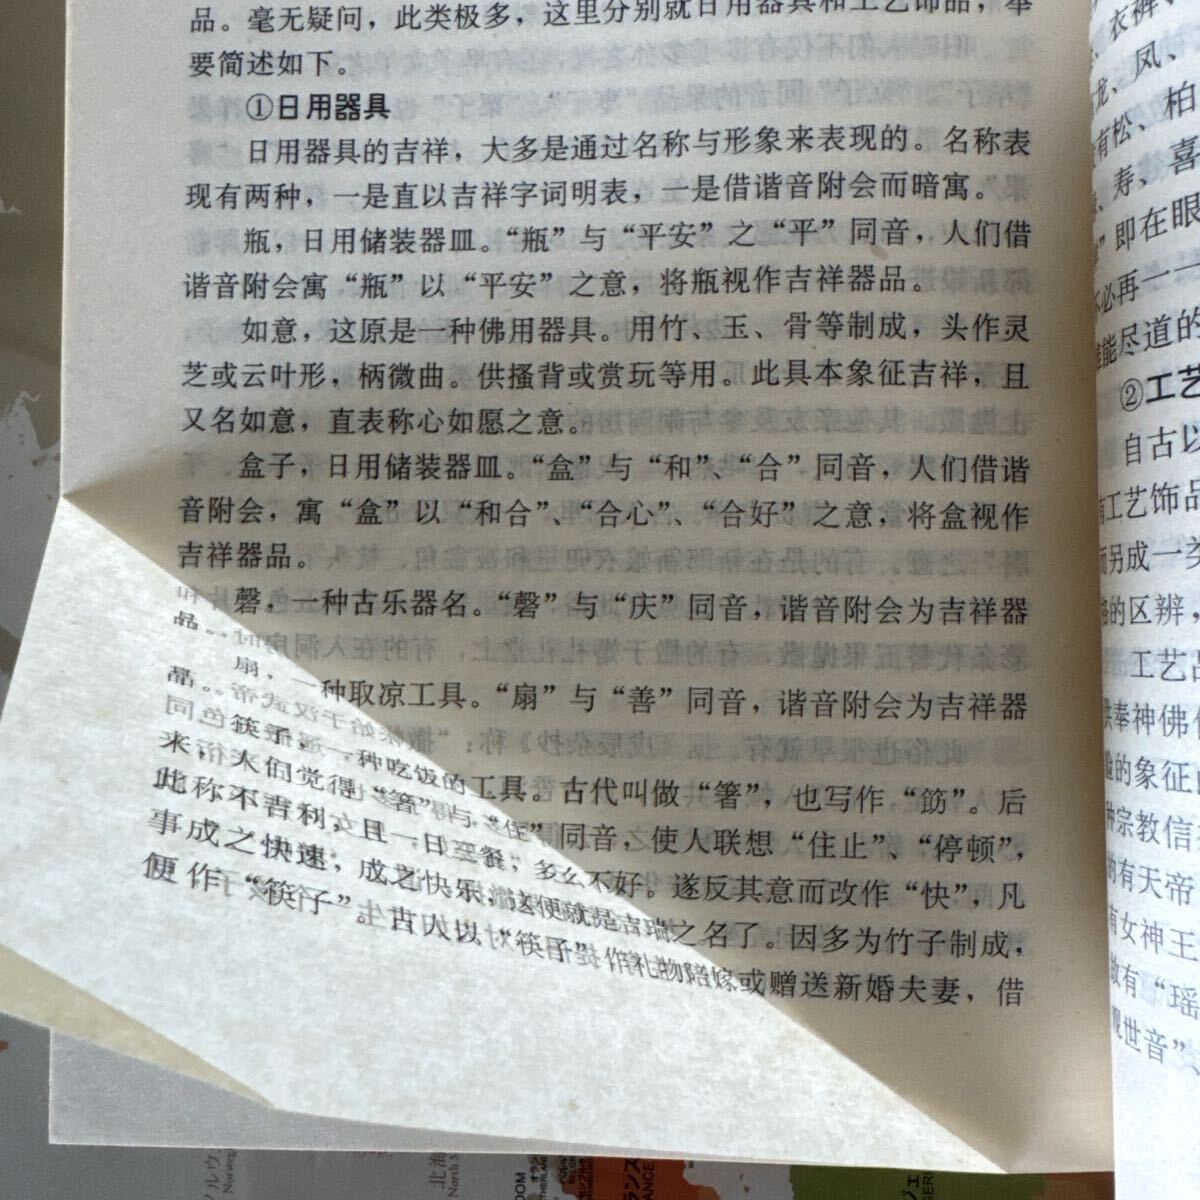 品。毫无疑问，此类极多，这里分别就日用器具和工艺饰品，举
要简述如下。
①日用器具
日用器具的吉祥，大多是通过名称与形象来表现的。名称表
现有两种，一是直以吉祥字词明表，一是借谐音附会而暗寓。
瓶，日用储装器皿。“瓶”与“平安”之“平”同音，人们借
谐音附会寓“瓶”以“平安”之意，将瓶视作吉祥器品。
如意，这原是一种佛用器具。用竹、玉、骨等制成，头作灵
芝或云叶形，柄微曲。供搔背或赏玩等用。此具本象征吉祥，且
又名如意，直表称心如愿之意。
盒子，日用储装器皿。“盒”与“和”、“合”同音，人们借谐
音附会，寓“盒”以“和合”、“合心”、“合好”之意，将盒视作
吉祥器品。
磬，一种古乐器名。“磬”与“庆”同音，谐音附会为吉祥器
品。
扇，一种取凉工具。“扇”与“善”同音，谐音附会为吉祥器
品。
筷子，一种吃饭的工具。古代叫做“箸”，也写作“筯”。后
来，人们觉得“箸”与“住”同音，使人联想“住止”、“停顿”，
此称不吉利，且一日三餐，多么不好。遂反其意而改作“快”，凡
事成之快速，成之快乐，这便就是吉瑞之名了。因多为竹子制成，
便作“筷子”。古人以“筷子”作礼物陪嫁或赠送新婚夫妻，借
衣裤
龙、凤、
有松、柏
、寿、喜
”即在眼
不必再一一
能尽道的
②工艺
自古以
有工艺饰品
而另成一类
的区辨，
工艺品
供奉神佛
的象征
种宗教信
的有天帝
有女神王
故有“瑶
观世音”、
ノルウ
Norwe
北海
North S
DOM
ランス
ANCE
ジェ
GER